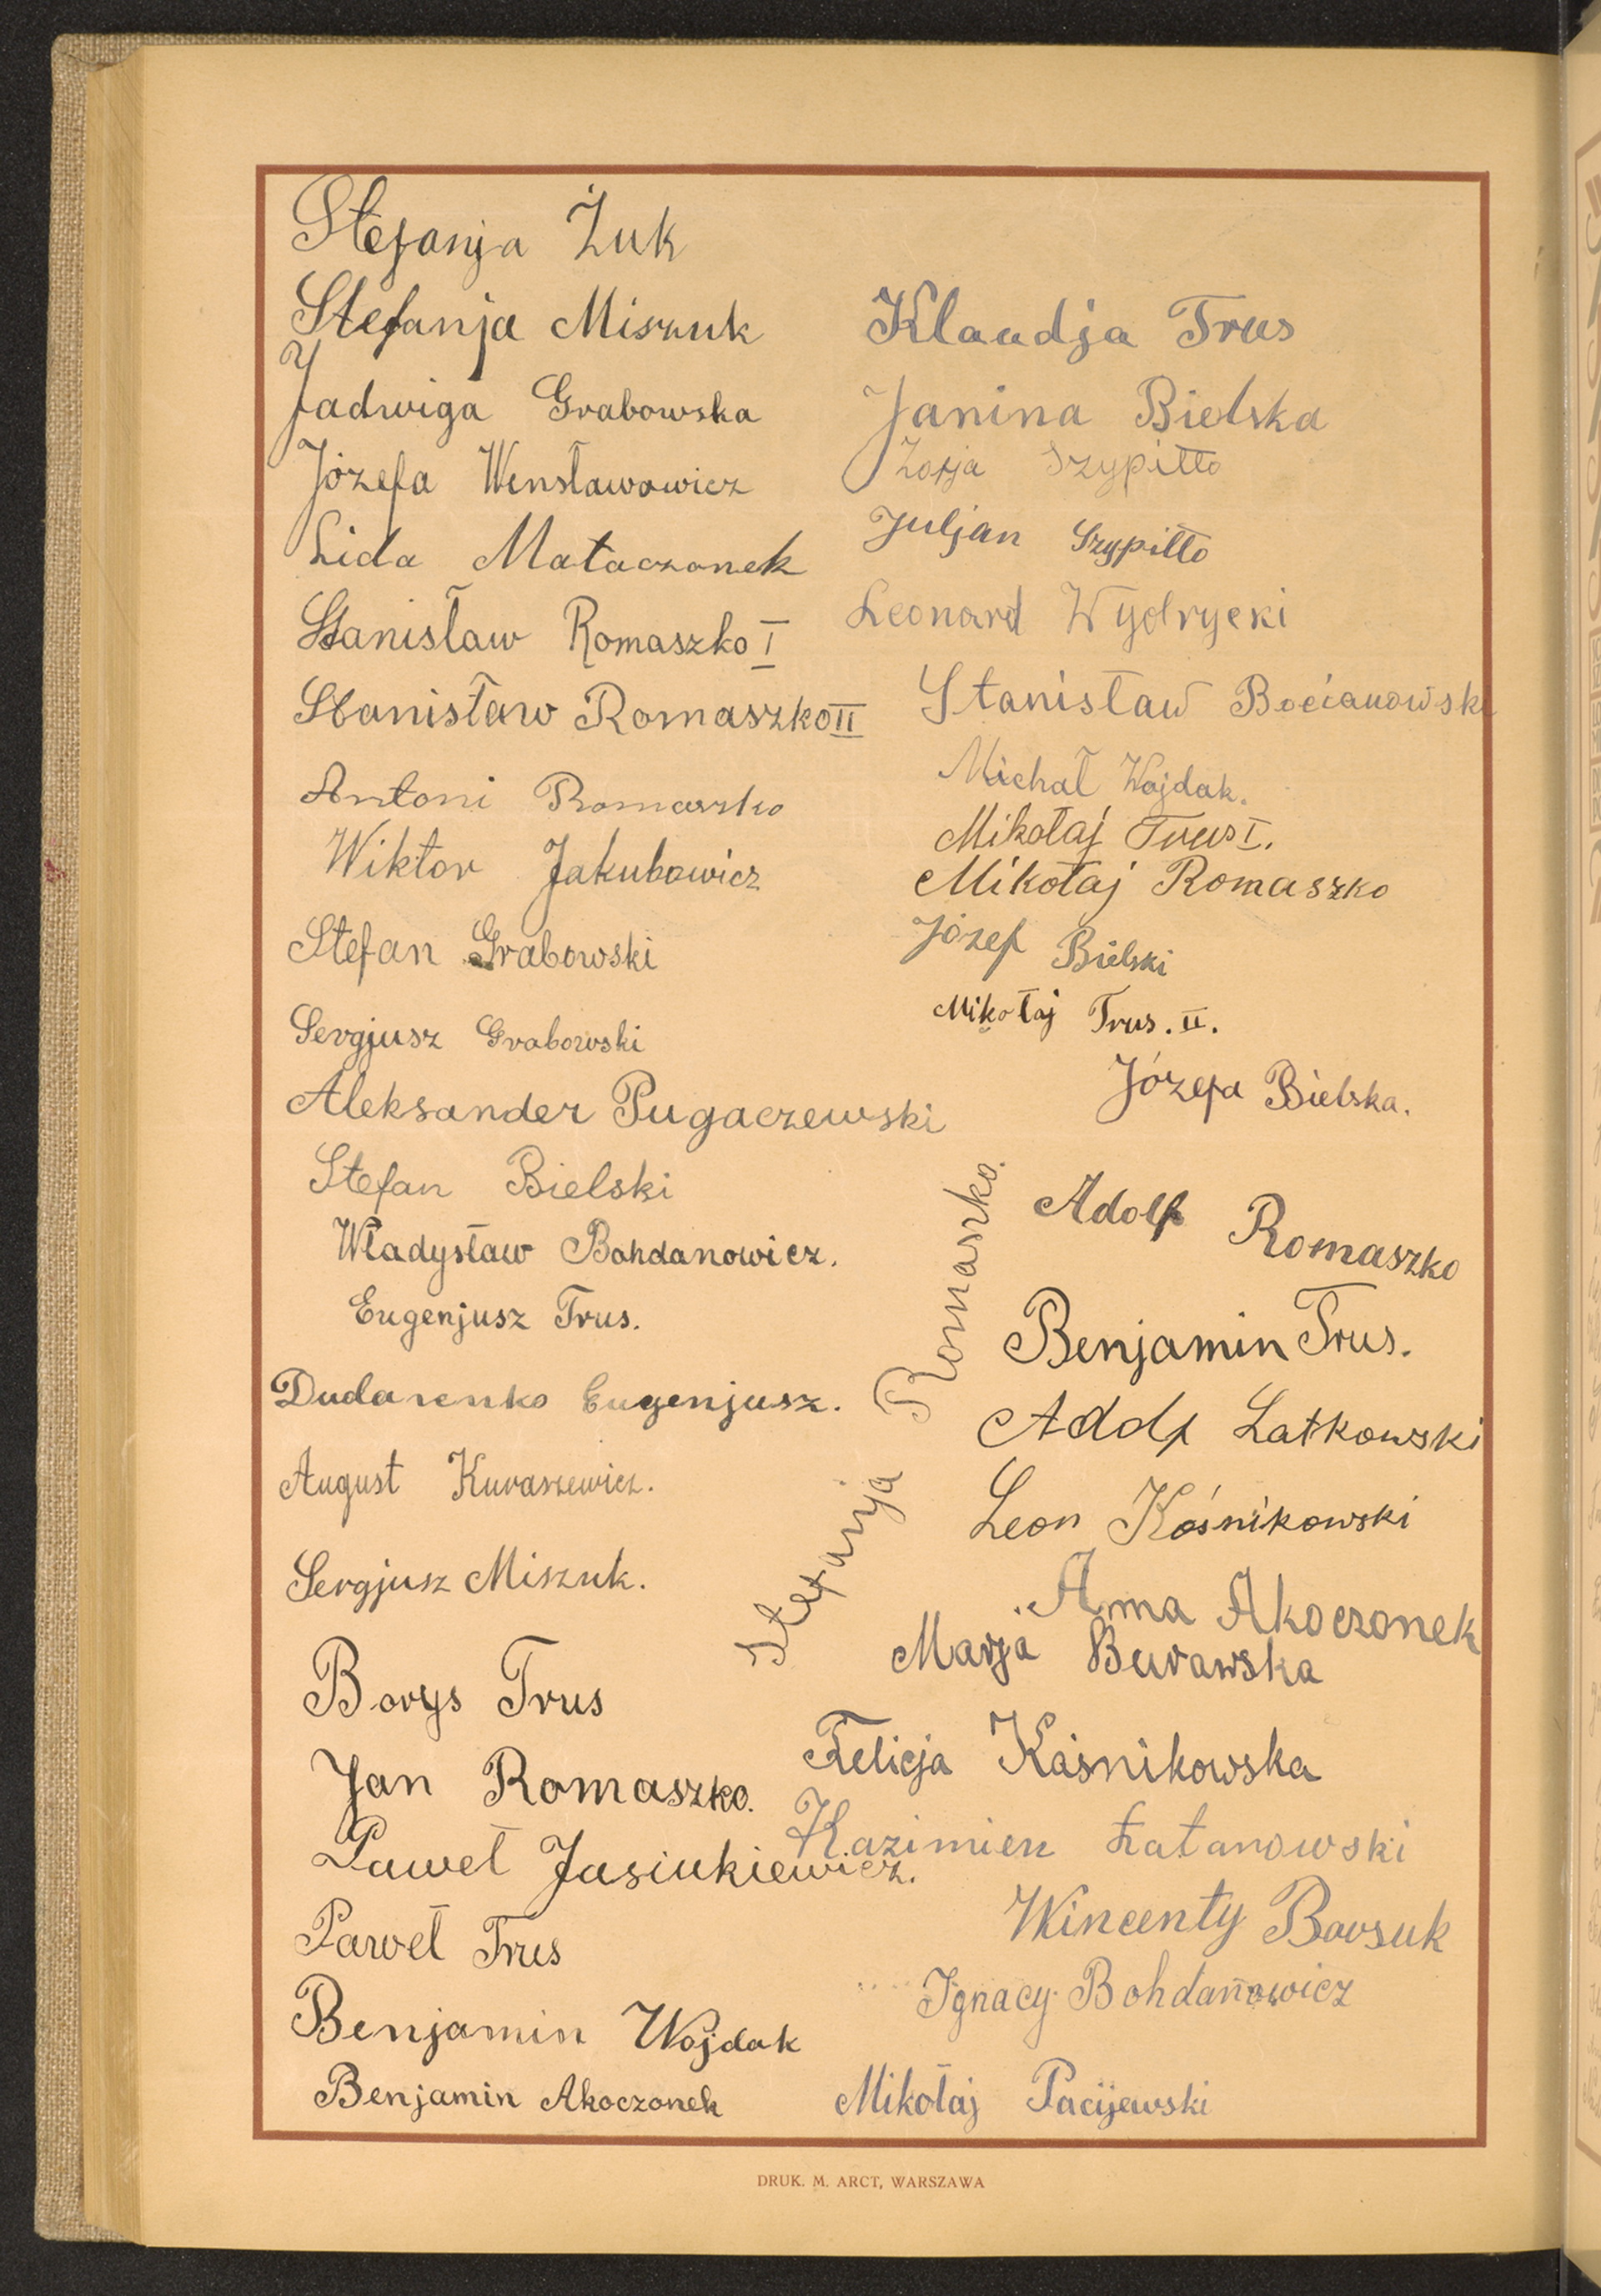 Stefanja Żuk
Stefanja Miszuk
Jadwiga Grabowska
Józefa Wensławowicz
Lida Mataczonek
Stanisław Romaszko I
Stanisław Romaszko II
Antoni Romaszko
Wiktor Jakubowicz
Stefan Grabowski
Sergjusz Grabowski
Aleksander Pugaczewski
Stefan Bielski
Władysław Bohdanowicz.
Eugenjusz Trus.
Dudarenko Eugenjusz.
August Kuraszewicz.
Sergjusz Miszuk.
Borys Trus
Jan Romaszko.
Paweł Jasiukiewicz.
Paweł Trus
Benjamin Wojdak
Benjamin Akoczonek
Klaudja Trus
Janina Bielska
Zofja Szypiłło
Juljan Szypiłło
Leonard Wydrycki
Stanisław Bocianowski
Michał Wojdak.
Mikołaj Trus I.
Mikołaj Romaszko
Józef Bielski
Mikołaj Trus. II.
Józefa Bielska.
Stefanja Romaszko.
Adolf Romaszko
Benjamin Trus.
Adolf Latkowski
Leon Kośnikowski
Anna Akoczonek
Marja Burawska
Felicja Kaśnikowska
Kazimierz Łatanowski
Wincenty Borsuk
Ignacy Bohdanowicz
Mikołaj Pacijewski
DRUK. M. ARCT, WARSZAWA